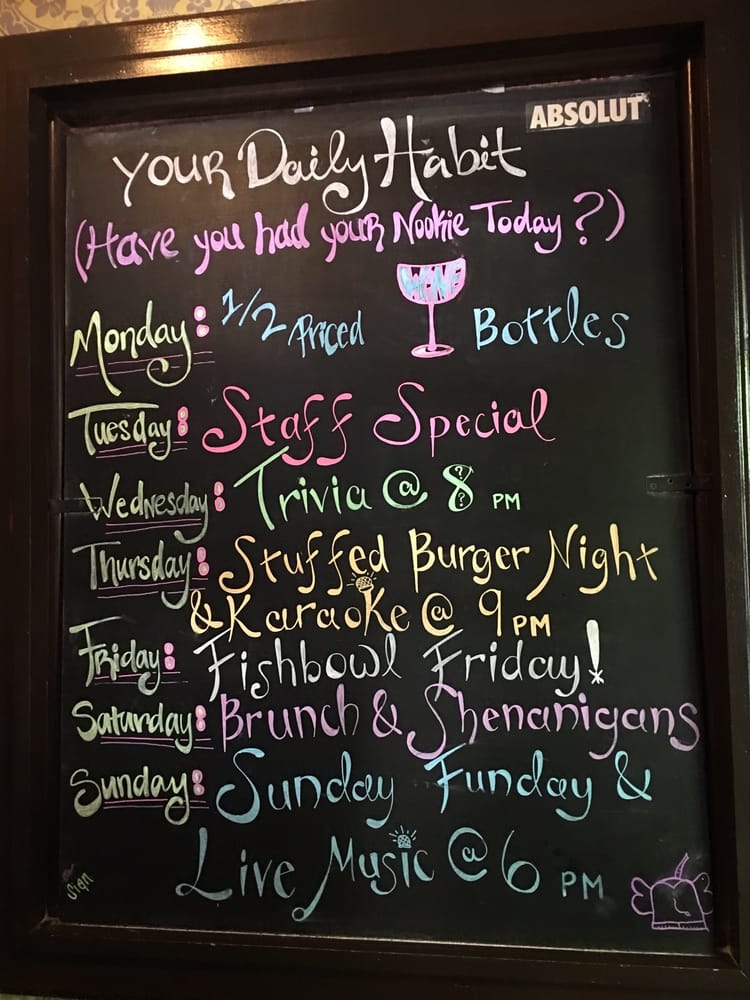 ABSOLUT
YOUR Daily Habit
(Have you had your Nookie Today?)
Monday: 1/2 Priced WiNE Bottles
Tuesday: Staff Special
Wednesday: Trivia @ 8 PM
Thursday: Stuffed Burger Night
& Karaoke @ 9 PM
Friday: Fishbowl Friday!
Saturday: Brunch & Shenanigans
Sunday: Sunday Funday &
Live Music @ 6 PM
Sign